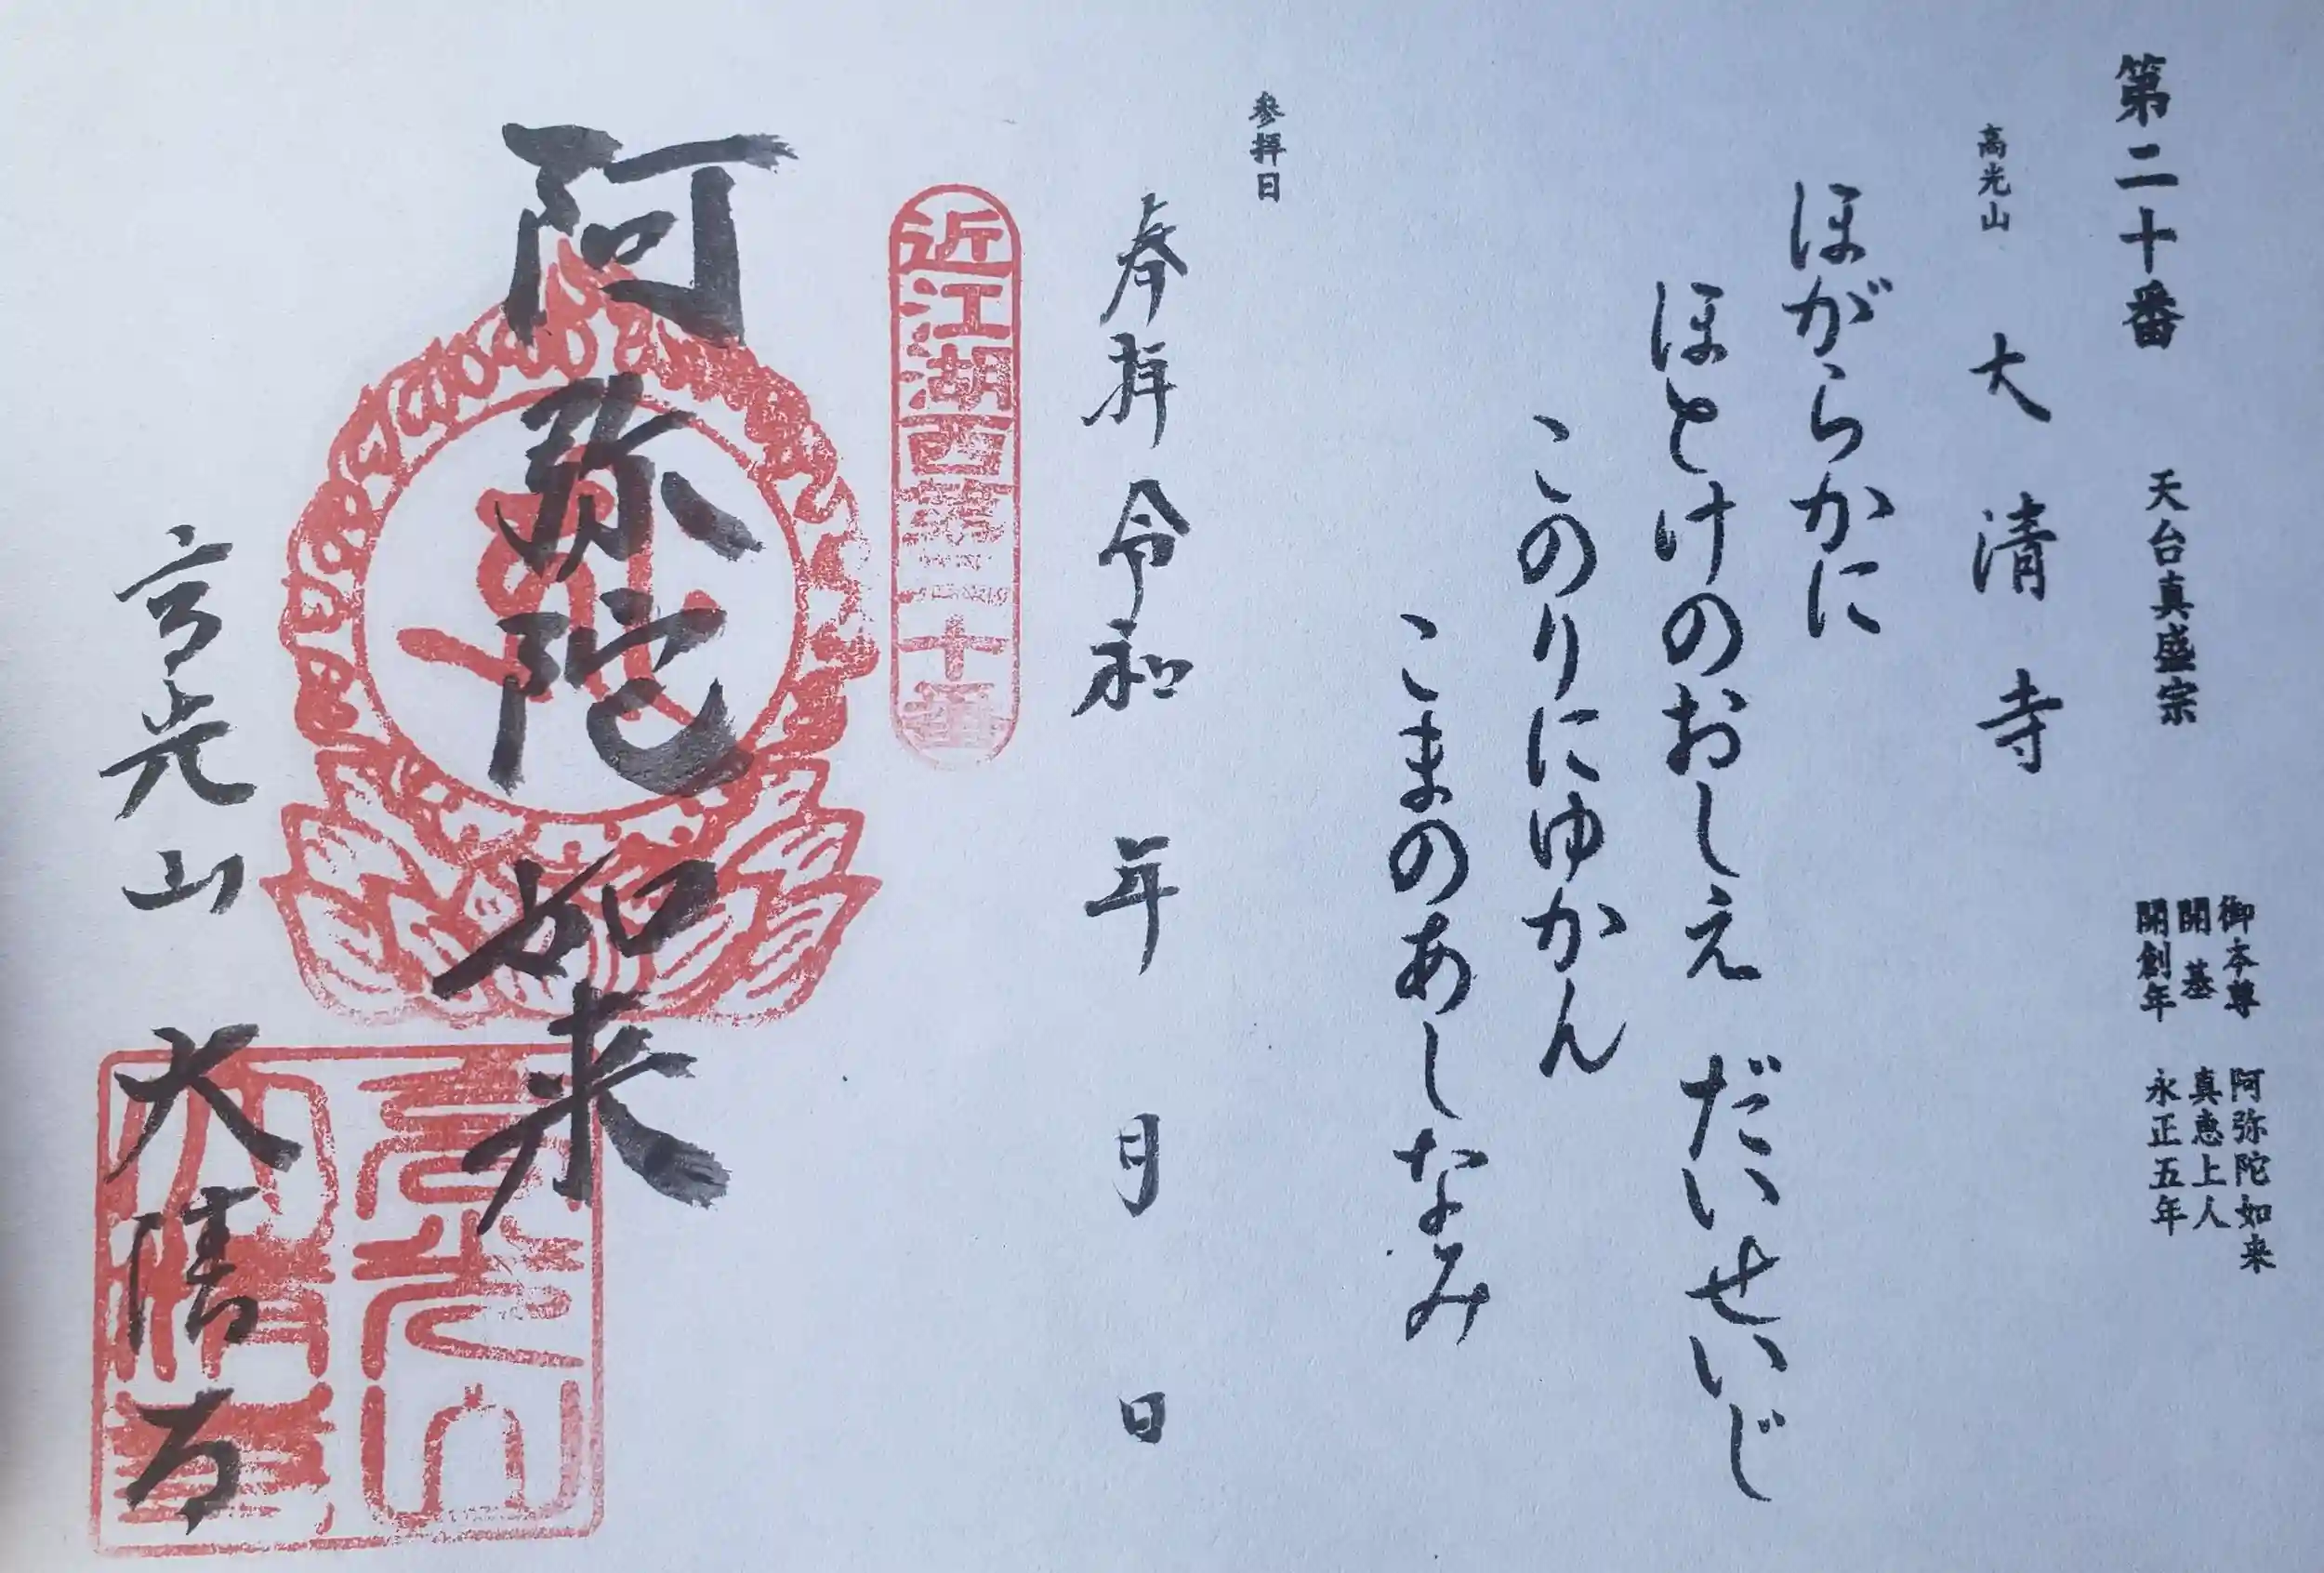 第二十番　天台真盛宗
御本尊　阿弥陀如来
開基　真恵上人
開創年　永正五年
高光山　大清寺
ほがらかに
ほとけのおしえ　だいせいじ
このりにゆかん
こまのあしなみ
参拝日
奉拝　令和　年　月　日
近江湖西第二十番
阿弥陀如来
高光山　大清寺
高光山
大清寺